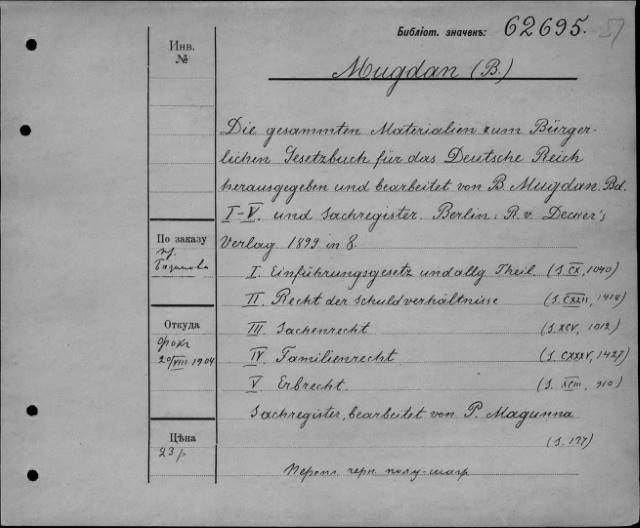 Библіот. значекъ: 62695.
Инв.
№
Mugdan (B.)
Die gesammten Materialien zum Bürger-
lichen Gesetzbuch für das Deutsche Reich
herausgegeben und bearbeitet von B. Mugdan. Bd.
I-V. und Sachregister. Berlin: R. v. Decker's
Verlag 1899 in 8.
По заказу
пр.
I. Einführungsgesetz und allg Theil. (S. CX, 1040)
II. Recht der Schuldverhältnisse (S. CXXII, 1414)
Откуда
III Sachenrecht (S. XCV, 1012)
20/VIII 1904
IV. Familienrecht (S. CXXXV, 1427)
V Erbrecht. (S. XCIII, 910)
Sachregister, bearbeitet von P. Magunna
(S. 177)
Цѣна
23 р
Перепл. черн. полу-шагр